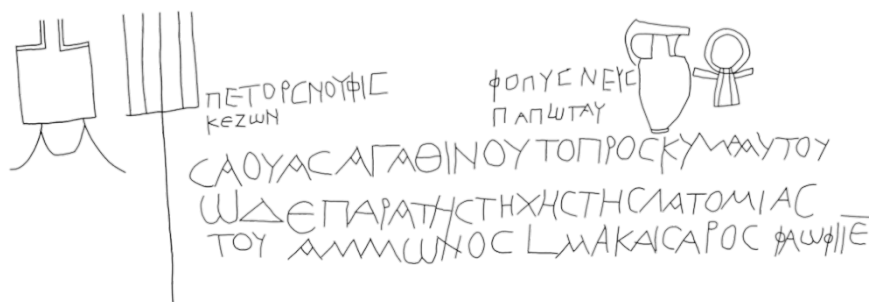 ΠΕΤΟΡCΝΟΥΦΙC
ΚΕΖΩΝ
ΦΟΠΥCΝΕΥC
ΠΑΠΩΤΑΥ
CΑΟΥΑCΑΓΑΘΙΝΟΥΤΟΠΡΟCΚΥΜΑΑΥΤΟΥ
ΩΔΕΠΑΡΑΤΗCΤΗΧΗCΤΗCΛΑΤΟΜΙΑC
ΤΟΥ ΑΜΜΩΝΟC LΜΑΚΑΙCΑΡΟC ΦΑΩΦΙΙΕ̅